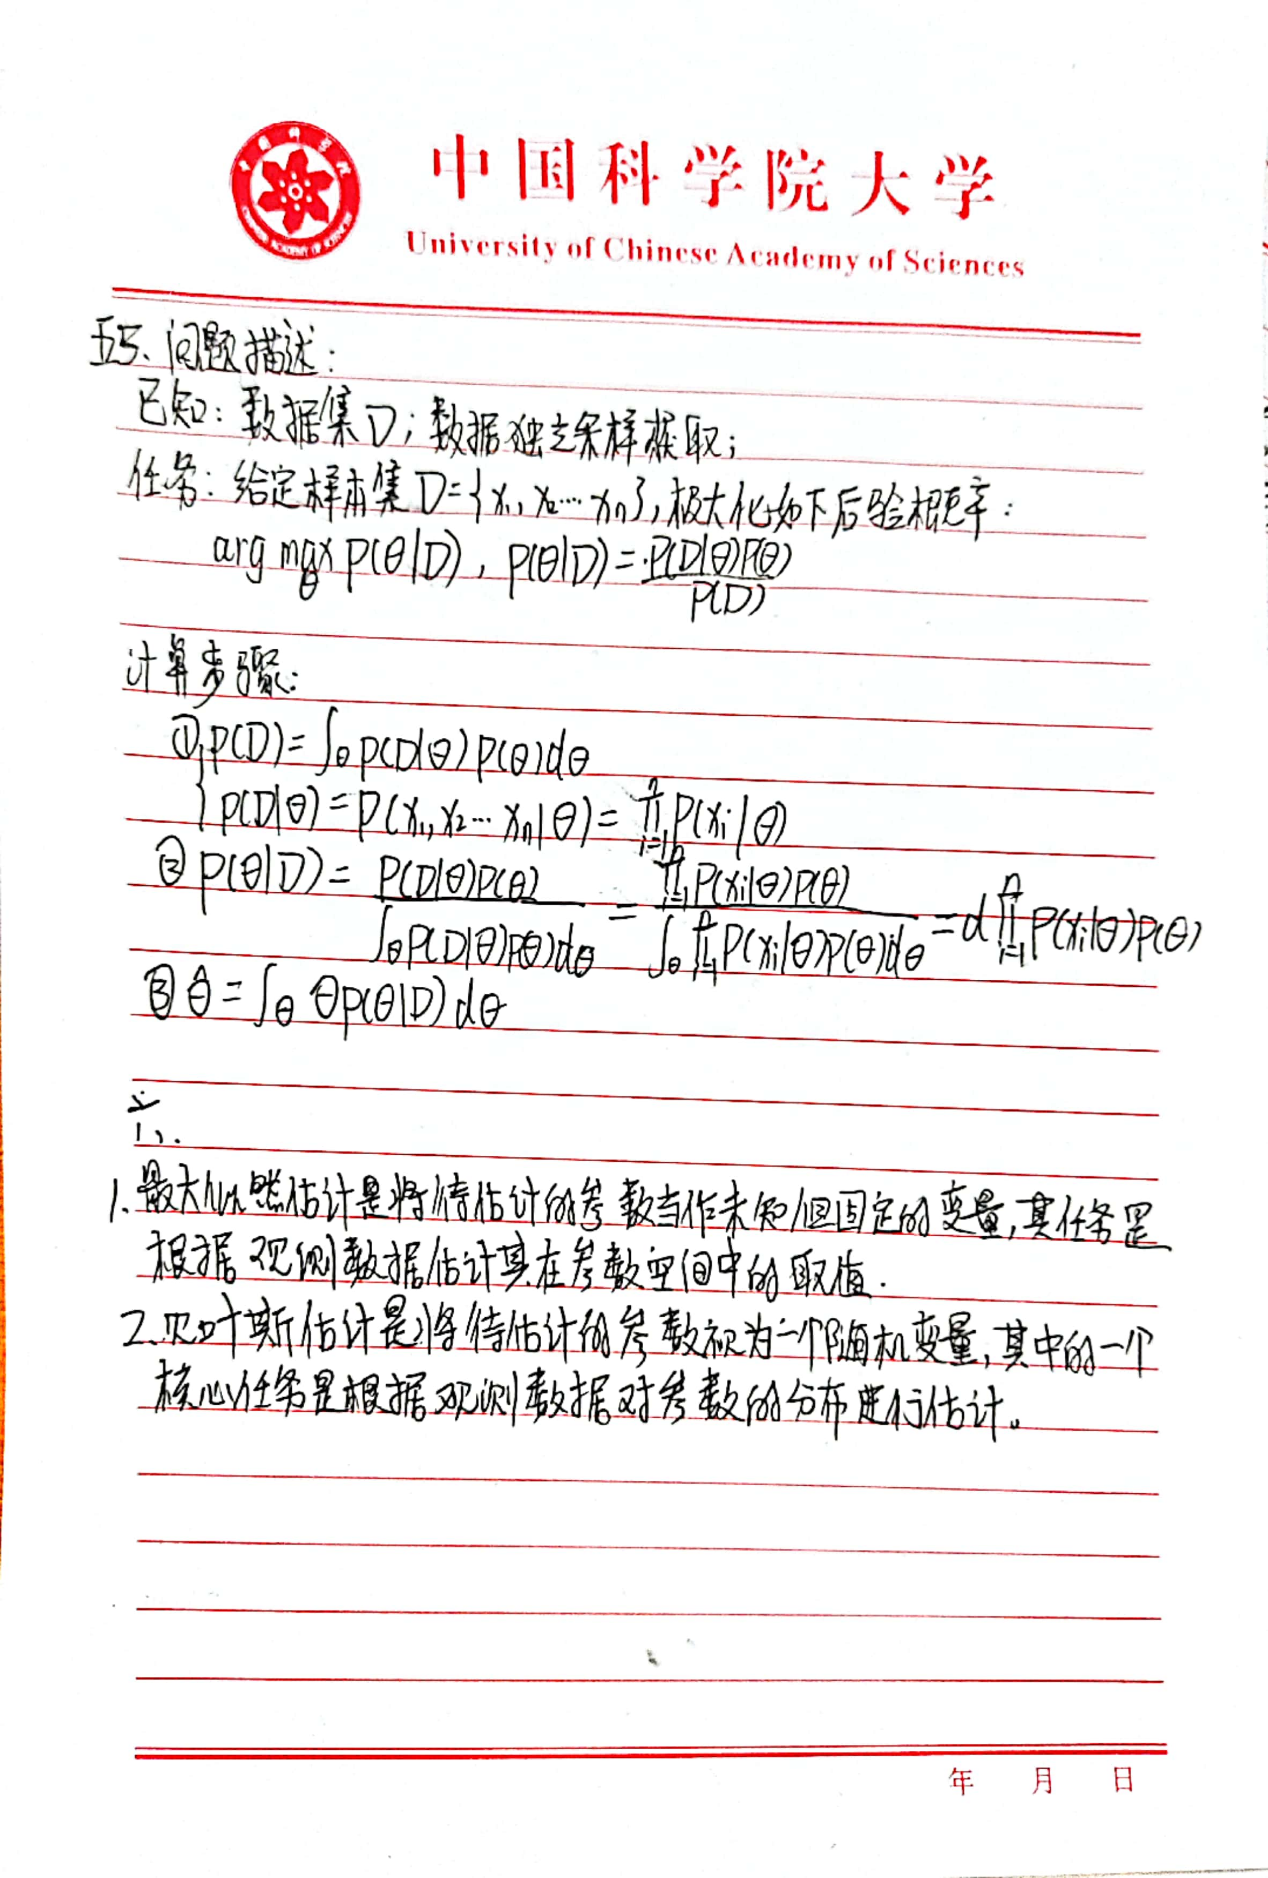 中国科学院大学
University of Chinese Academy of Sciences
五、问题描述:
已知: 数据集D; 数据独立采样获取;
任务: 给定样本集D={x₁, x₂…xₙ}, 极大化如下后验概率:
arg max_θ p(θ|D), p(θ|D) = p(D|θ)p(θ) / p(D)
计算步骤:
① { p(D) = ∫_θ p(D|θ)p(θ)dθ
p(D|θ) = p(x₁, x₂…xₙ|θ) = ∏_{i=1}^{n} p(xᵢ|θ)
② p(θ|D) = p(D|θ)p(θ) / ∫_θ p(D|θ)p(θ)dθ = ∏_{i=1}^{n} p(xᵢ|θ)p(θ) / ∫_θ ∏_{i=1}^{n} p(xᵢ|θ)p(θ)dθ = α ∏_{i=1}^{n} p(xᵢ|θ)p(θ)
③ θ̂ = ∫_θ θp(θ|D)dθ
六、
1. 最大似然估计是将待估计的参数当作未知但固定的变量, 其任务是
根据观测数据估计其在参数空间中的取值.
2. 贝叶斯估计是将待估计的参数视为一个随机变量, 其中的一个
核心任务是根据观测数据对参数的分布进行估计。
年 月 日